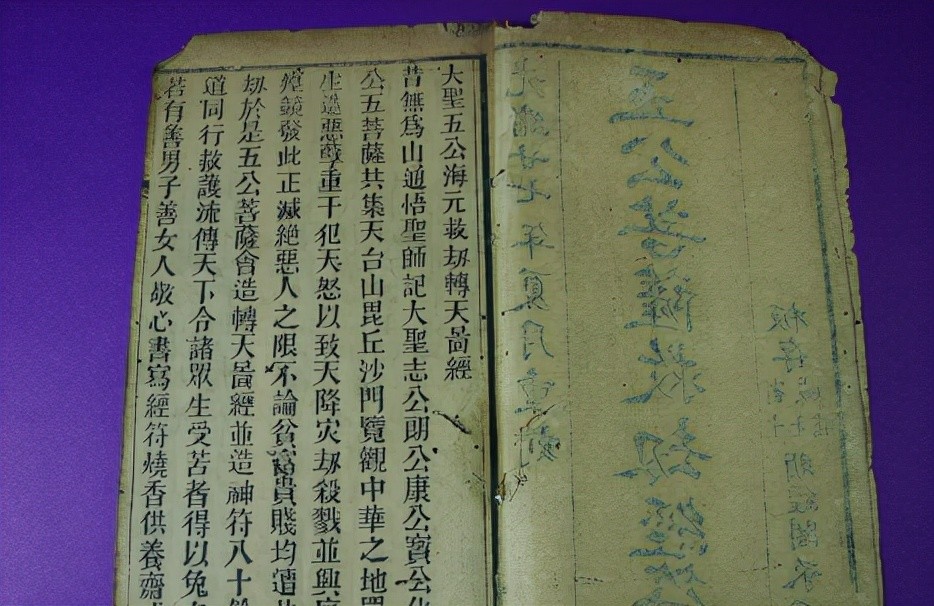 板存
五公菩薩救刼經
光緒廿七年夏月重鐫
大聖五公海元救刼轉天啚經
昔無為山通悟聖師記大聖志公朗公康公寳公化
公五菩薩共集天台山毘丘沙門覽觀中華之地眾
生造惡孽重干犯天怒以致天降灾刼殺戮並興
瘴發此正滅絕惡人之限不論貧富貴賤均遭
刼於是五公菩薩會造轉天啚經並造神符八十餘
道同行救護流傳天下令諸眾生受苦者得以免
若有善男子善女人敬心書寫經符燒香供養齋